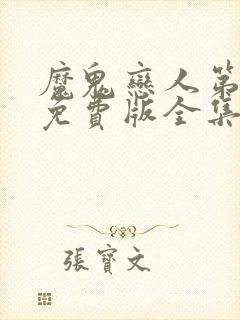 魔鬼戀人第
免費版全集
張寶文